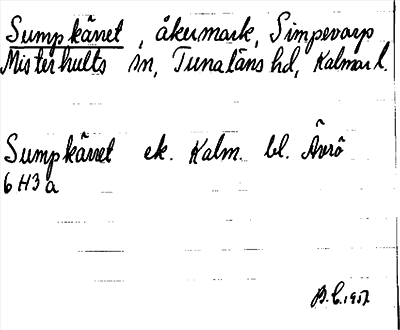 Sumpkäret, åkermark, Simpevarp
Misterhults sn, Tunaläns hd, Kalmar l.
Sumpkärret ek. Kalm. bl. Ävrö
6 H3 a
B.C. 1957